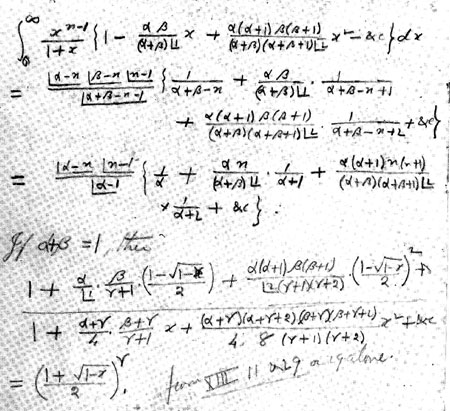 ∫₀^∞ x^{n-1}/(1+x) {1 - αβ/((α+β)|1) x + α(α+1)β(β+1)/((α+β)(α+β+1)|2) x² - &c} dx
= |α-n |β-n |n-1 / |α+β-n-1 {1/(α+β-n) + αβ/((α+β)|1) · 1/(α+β-n+1)
+ α(α+1)β(β+1)/((α+β)(α+β+1)|2) · 1/(α+β-n+2) + &c}
= |α-n |n-1 / |α-1 {1/α + αn/((α+β)|1) · 1/(α+1) + α(α+1)n(n+1)/((α+β)(α+β+1)|2)
× 1/(α+2) + &c}.
If α+β = 1, then
1 + α/|1 · β/(r+1) · ((1-√(1-x))/2) + α(α+1)β(β+1)/(|2(r+1)(r+2)) · ((1-√(1-x))/2)² +
1 + (α+r)/4 · (β+r)/(r+1) x + (α+r)(α+r+2)(β+r)(β+r+2)/(4·8(r+1)(r+2)) x² + &c
= ((1+√(1-x))/2)^r. from XIII 11 & 29